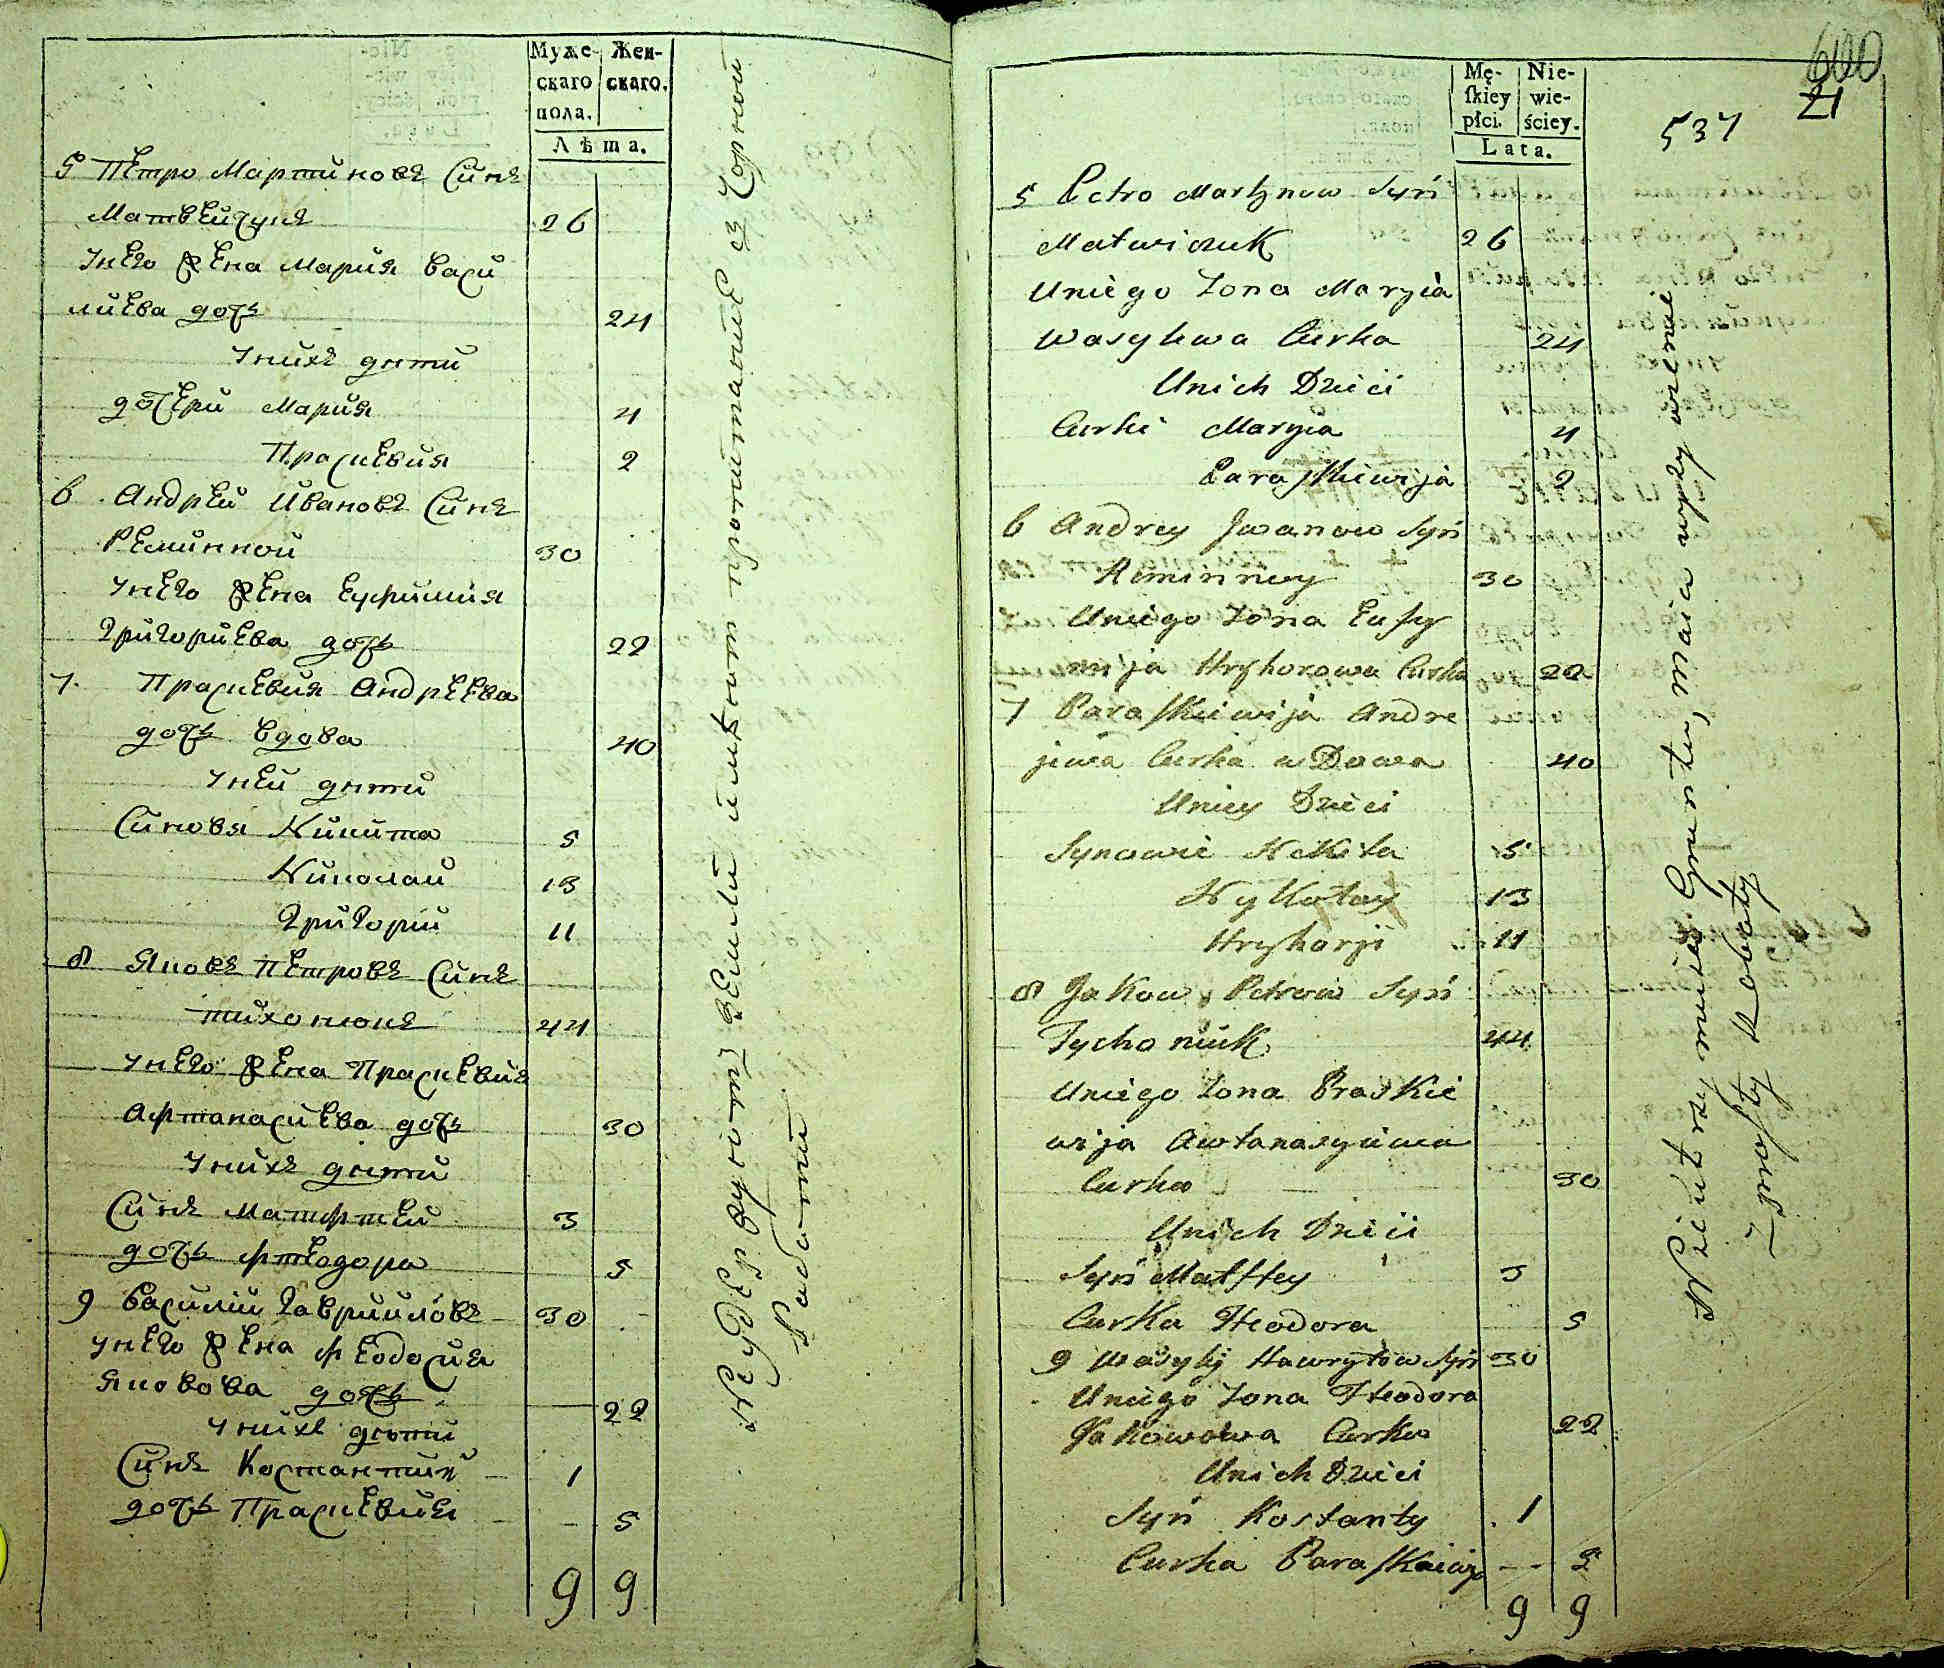 Муже-
скаго
пола.
Жен-
скаго.
Лѣта.
5 Петро Мартиновъ Синъ
Матвеичукъ 26
Унего жена Мария Васи
лиева дочь 24
Унихъ дѣти
дочери Мария 4
Праскевия 2
6 Андрей Ивановъ Синъ
Реминной 30
Унего жена Еуфимия
Григориева дочь 22
7 Праскевия Андреева
дочь вдова 40
Уней дѣти
Синовя Никита 5
Николай 13
Григорій 11
8 Яковъ Петровъ Синъ
Тихонюкъ 44
Унего жена Праскевия
Афтанасиева дочь 30
Унихъ дѣти
Синъ Матфтей 3
дочь Фтеодора 5
9 Василій Гавриловъ 30
Унего жена Феодосия
Яковова дочь 22
Унихъ дѣти
Синъ Костантий 1
дочь Праскевия 5
9 9
земли имѣют пропитание
600
21
537
Mę-
skiey
płci.
Nie-
wie-
ściey.
Lata.
5 Petro Martynow Syń
Matwiczuk 26
Uniego Zona Maryia
Wasylewa Curka 24
Unich Dzieci
Curki Maryia 4
Paraskiewija 2
6 Andrey Jwanow Syń
Reminney 30
Uniego Zona Eufy
mija Hryhorowa Curka 22
7 Paraskiewija Andre
jiwa Curka w Dowa 40
Uniey Dzieci
Synowie Nikita 5
Nykołay 13
Hryhorji 11
8 Jakow Petrow Syń
Tychoniuk 44
Uniego Zona Praskie
wija Awtanasyiwa
Curka 30
Unich Dzieci
Syń Matftey 3
Curka Fteodora 5
9 Wasylij Hawryłow Syń 30
Uniego Zona Fteodora
Jakowowa Curka 22
Unich Dzieci
Syń Kostanty 1
Curka Paraskiewija 5
9 9
Gruntu, maią
z prosty Roboty